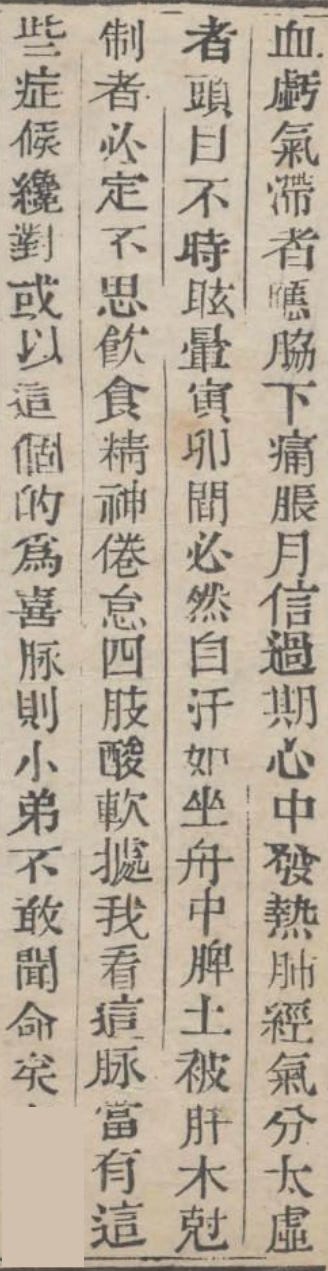 血虧氣滯者應脇下痛脹月信過期心中發熱肺經氣分太虛
者頭目不時眩暈寅卯間必然自汗如坐舟中脾土被肝木尅
制者必定不思飲食精神倦怠四肢酸軟㨿我看這脉當有這
些症候纔對或以這個的爲喜脉則小弟不敢聞命矣